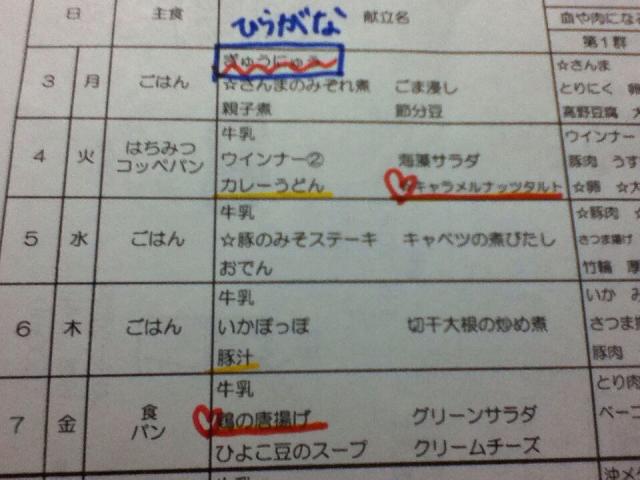 ひらがな
日 主食 献立名 血や肉にな
第1群
3 月 ごはん ぎゅうにゅう ☆さんま
☆さんまのみぞれ煮 ごま浸し とりにく 卵
親子煮 節分豆 高野豆腐
4 火 はちみつコッペパン 牛乳 ウインナー
ウインナー② 海藻サラダ 豚肉 うす
カレーうどん キャラメルナッツタルト ☆卵
5 水 ごはん 牛乳 ☆豚肉
☆豚のみそステーキ キャベツの煮びたし さつま揚げ
おでん 竹輪 厚
6 木 ごはん 牛乳 いか み
いかぽっぽ 切干大根の炒め煮 さつま
豚汁 豚肉
7 金 食パン 牛乳 とり肉
鶏の唐揚げ グリーンサラダ ベーコ
ひよこ豆のスープ クリームチーズ
牛乳